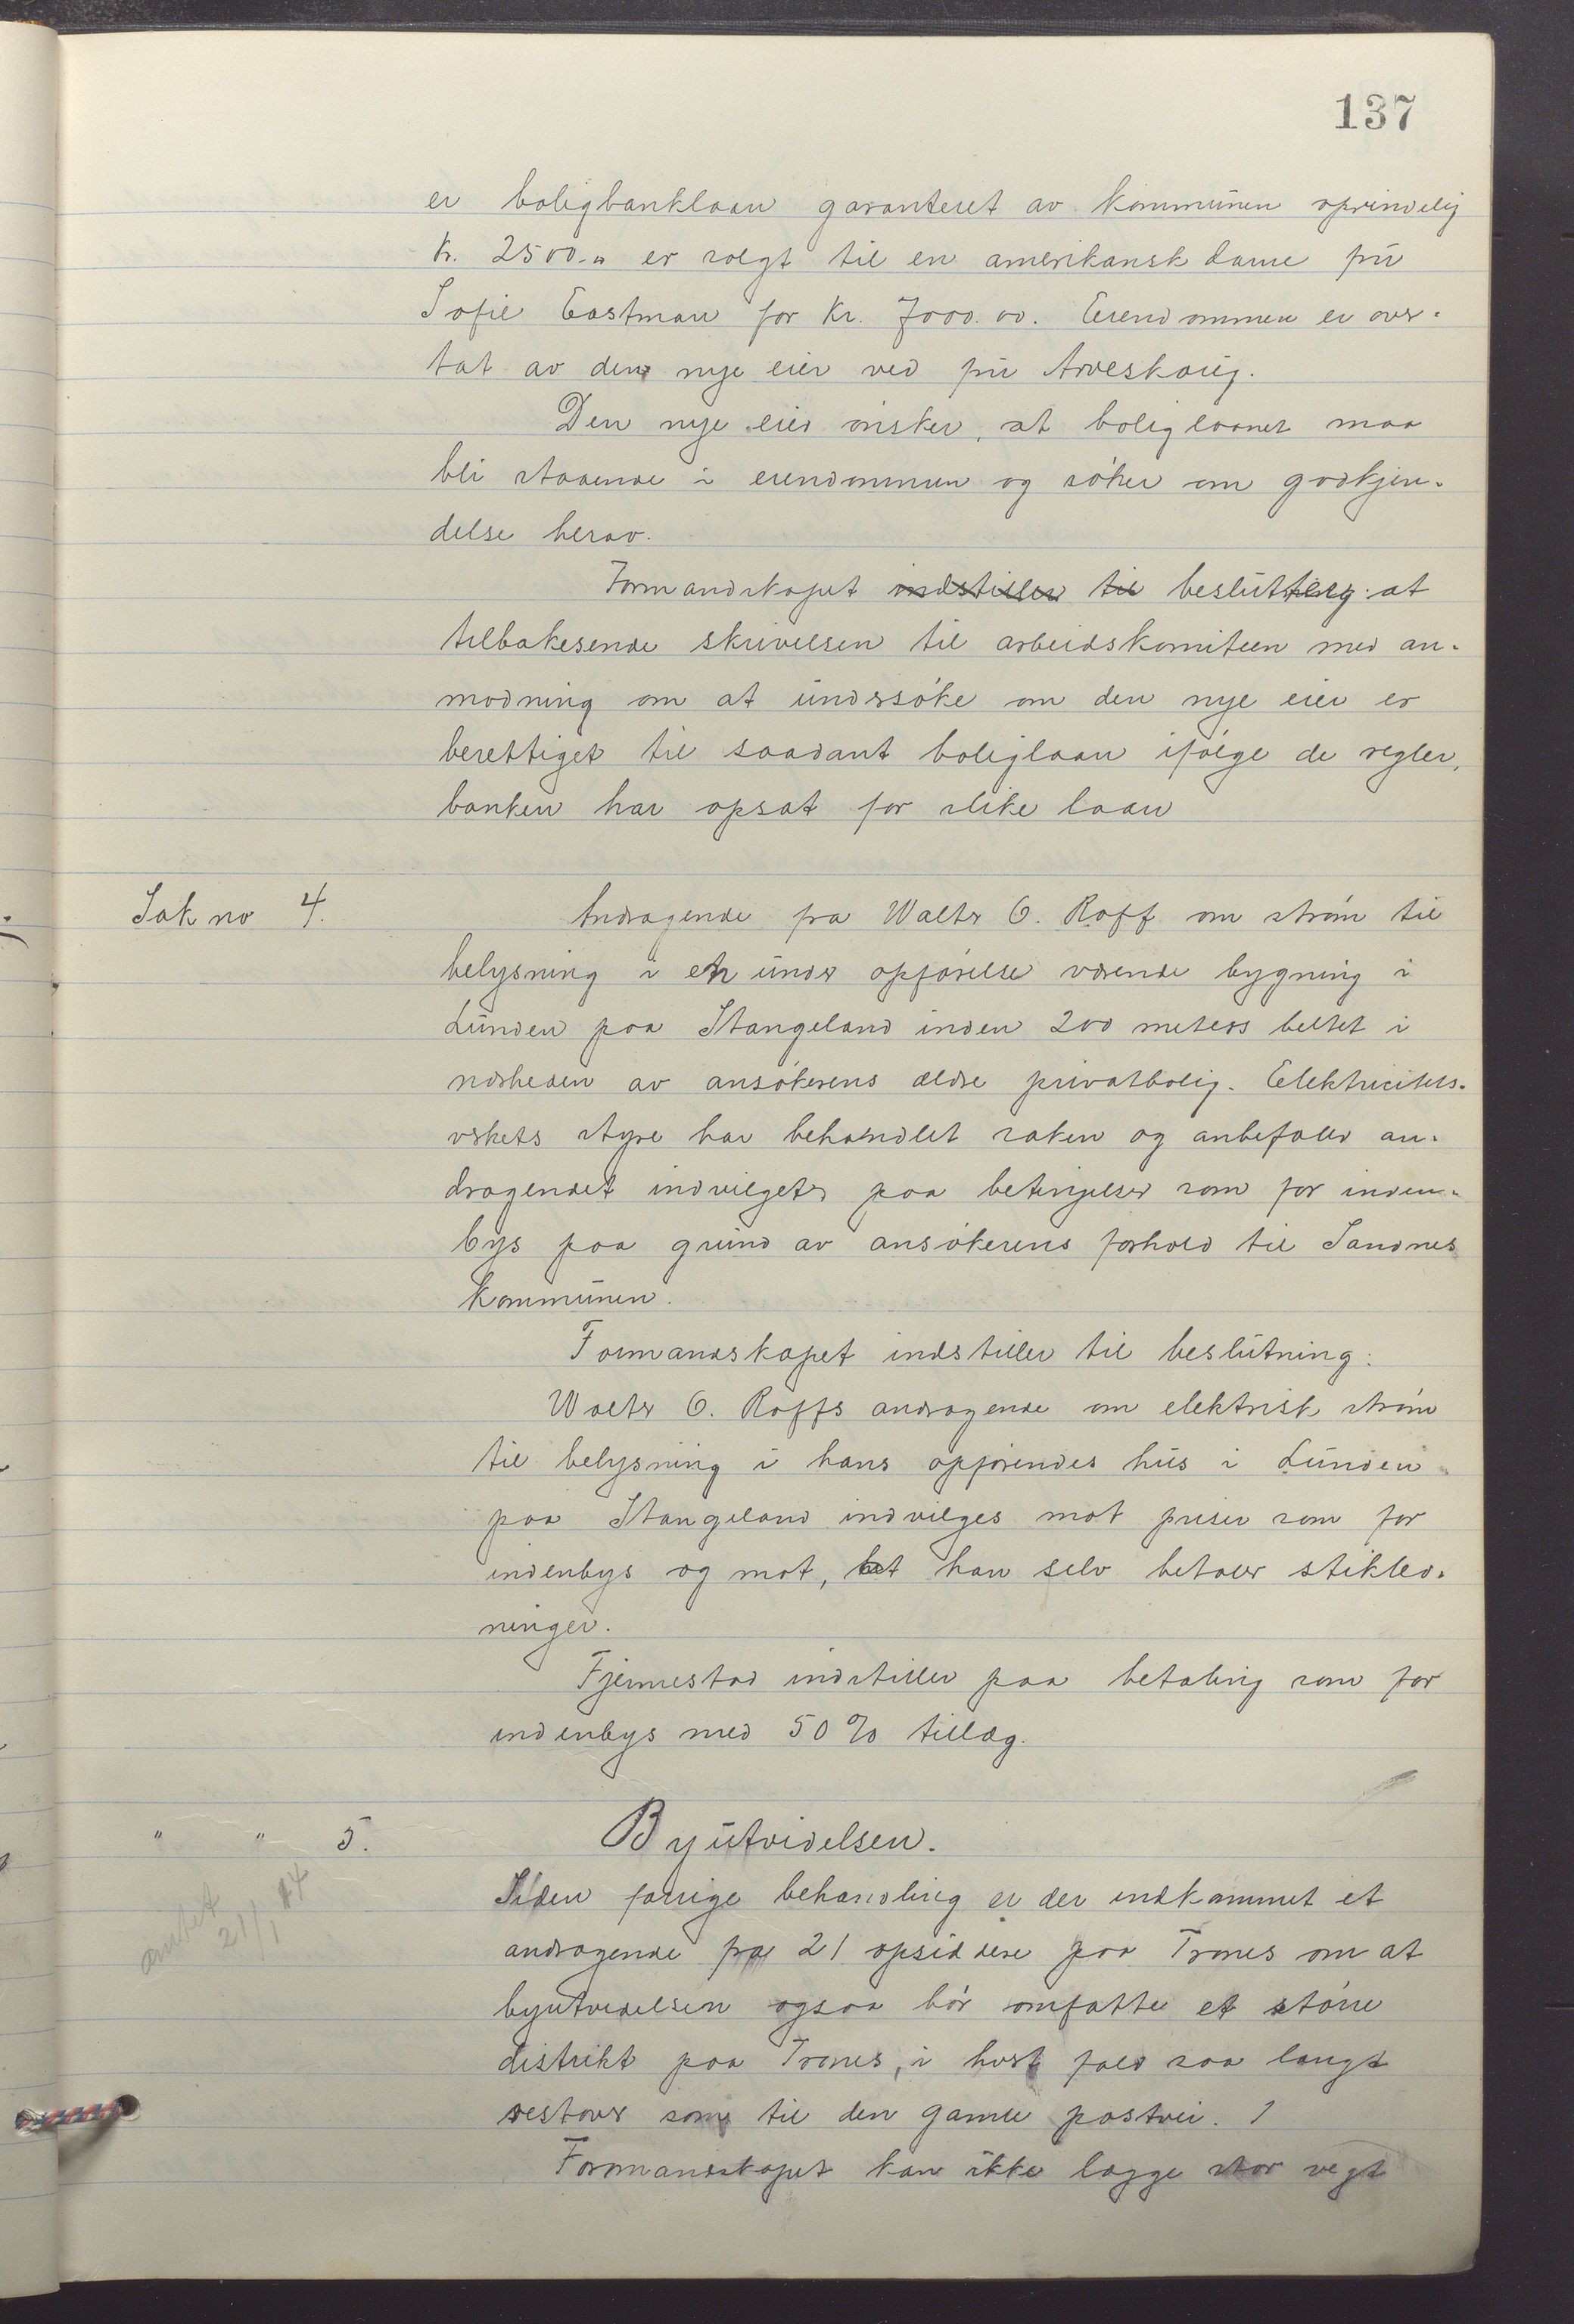 137
er boligbanklaan garanteret av kommunen oprindelig
kr. 2500.- er solgt til en amerikansk dame frü
Sofie Eastman for Kr. 7000.00. Eiendommen er over-
tat av den nye eier ved frü Arveskoug.
Den nye eier ønsker, at boliglaanet maa
bli staaende i eiendommen og søker om godkjen-
delse herav.
Formandskapet indstiller til beslutning: at
tilbakesende skrivelsen til arbeidskomiteen med an-
modning om at undersøke om den nye eier er
berettiget til saadant boliglaan ifølge de regler,
banken har opsat for slike laan
Sak no 4.
Andragende fra Walter O. Roff om strøm til
belysning i en under opførelse værende bygning i
Lunden paa Stangeland inden 200 meters beltet i
nærheden av ansøkerens ældre privatbolig. Elektricitets-
verkets styre har behandlet saken og anbefaler an-
dragendet indvilget paa betingelser som for inden-
bys paa grund av ansøkerens forhold til Sandnes
kommunen.
Formandskapet indstiller til beslutning:
Walter O. Roffs andragende om elektrisk strøm
til belysning i hans opførendes hus i Lunden
paa Stangeland indvilges mot priser som for
indenbys og mot, at han selv betaler stikled-
ninger.
Fjermestad indstiller paa betaling som for
indenbys med 50% tillæg.
" " 5.
Byutvidelsen.
21/1 14
Siden forrige behandling er der indkommet et
andragende fra 21 opsiddere paa Trones om at
byutvidelsen ogsaa bør omfatte et større
distrikt paa Trones, i hvert fald saa langt
vestover som til den gamle postvei.
Formandskapet kan ikke lægge stor vegt